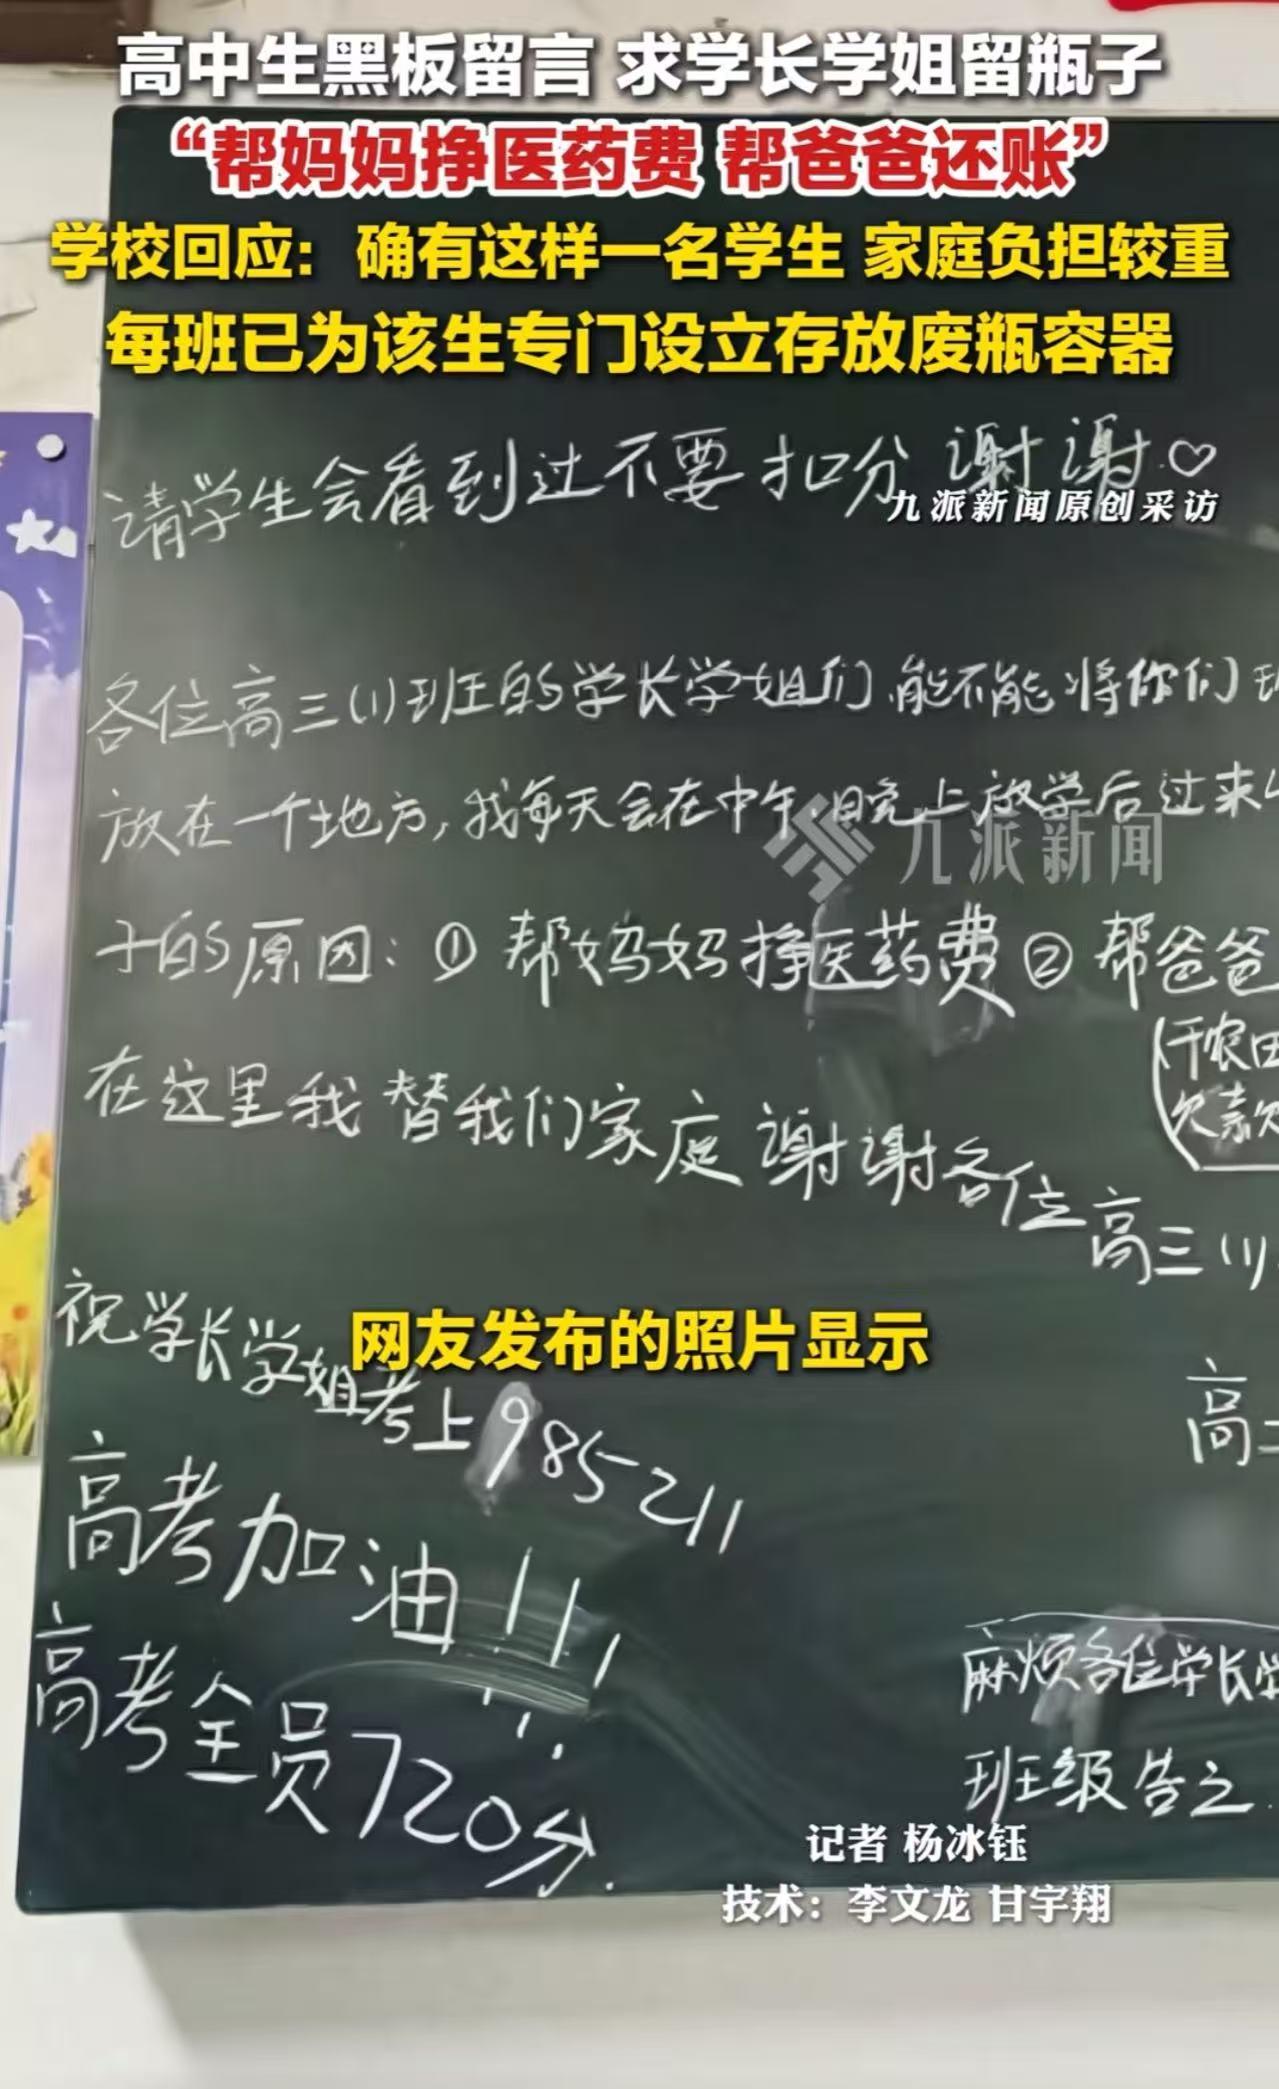 高中生黑板留言 求学长学姐留瓶子
“帮妈妈挣医药费 帮爸爸还账”
学校回应：确有这样一名学生 家庭负担较重
每班已为该生专门设立存放废瓶容器
请学生会看到过不要扣分 谢谢♡
九派新闻原创采访
各位高三(1)班的学长学姐们,能不能将你们
放在一个地方,我每天会在中午.晚上放学后过来
九派新闻
子的原因:①帮妈妈挣医药费②帮爸爸
(干农田
欠款
在这里我替我们家庭谢谢各位高三(1)
祝学长学姐考上985 211
网友发布的照片显示
高考加油!!!
高考全员720分.
麻烦各位学长
班级告之.
记者 杨冰钰
技术：李文龙 甘宇翔